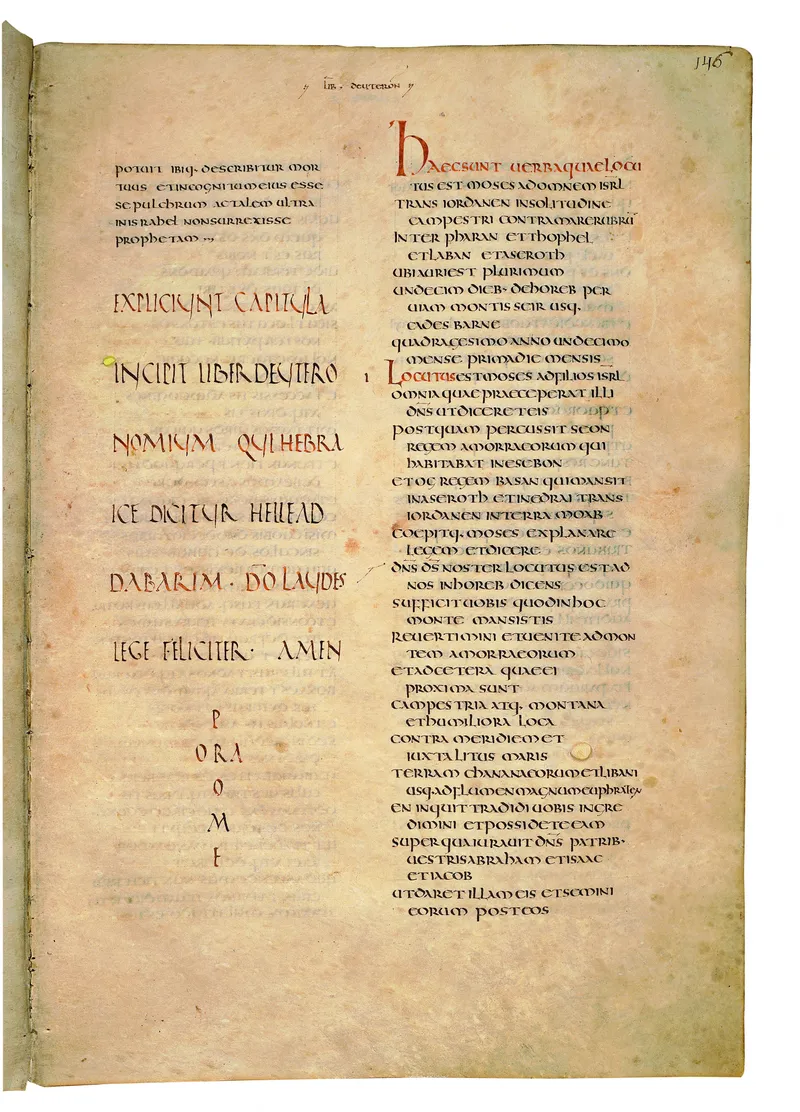 146
LIB · DEUTERON
POTURI IBIQ· DESCRIBITUR MOR
TUUS ETINCOGNITUM EIUS ESSE
SEPULCHRUM AC TALEM ULTRA
IN ISRAHEL NON SURREXISSE
PROPHETAM
EXPLICIUNT CAPITULA
INCIPIT LIBER DEUTERO
NOMIUM QUI HEBRA
ICE DICITUR HELLEAD
DABARIM · DO LAUDES
LEGE FELICITER · AMEN
P
ORA
O
M
E
HAEC SUNT UERBA QUAE LOCU
TUS EST MOSES AD OMNEM ISRL
TRANS IORDANEN IN SOLITUDINE
CAMPESTRI CONTRA MARE RUBRU
INTER PHARAN ET THOPHEL
ET LABAN ET ASEROTH
UBI AURI EST PLURIMUM
UNDECIM DIEB· DE HOREB PER
UIAM MONTIS SEIR USQ·
CADES BARNE
QUADRAGESIMO ANNO UNDECIMO
MENSE PRIMA DIE MENSIS
I LOCUTUS EST MOSES AD FILIOS ISRL
OMNIA QUAE PRAECEPERAT ILLI
DNS UT DICERET EIS
POSTQUAM PERCUSSIT SEON
REGEM AMORRAEORUM QUI
HABITABAT IN ESEBON
ET OG REGEM BASAN QUI MANSIT
IN ASEROTH ET IN EDRAI TRANS
IORDANEN IN TERRA MOAB
COEPITQ· MOSES EXPLANARE
LEGEM ET DICERE
DNS DS NOSTER LOCUTUS EST AD
NOS IN HOREB DICENS
SUFFICIT UOBIS QUOD IN HOC
MONTE MANSISTIS
REUERTIMINI ET UENITE AD MON
TEM AMORRAEORUM
ET AD CETERA QUAE EI
PROXIMA SUNT
CAMPESTRIA ATQ· MONTANA
ET HUMILIORA LOCA
CONTRA MERIDIEM ET
IUXTA LITUS MARIS
TERRAM CHANANAEORUM ET LIBANI
USQ· AD FLUMEN MAGNUM EUPHRATEN
EN INQUIT TRADIDI UOBIS INGRE
DIMINI ET POSSIDETE EAM
SUPER QUA IURAUIT DNS PATRIB·
UESTRIS ABRAHAM ET ISAAC
ET IACOB
UT DARET ILLAM EIS ET SEMINI
EORUM POST EOS